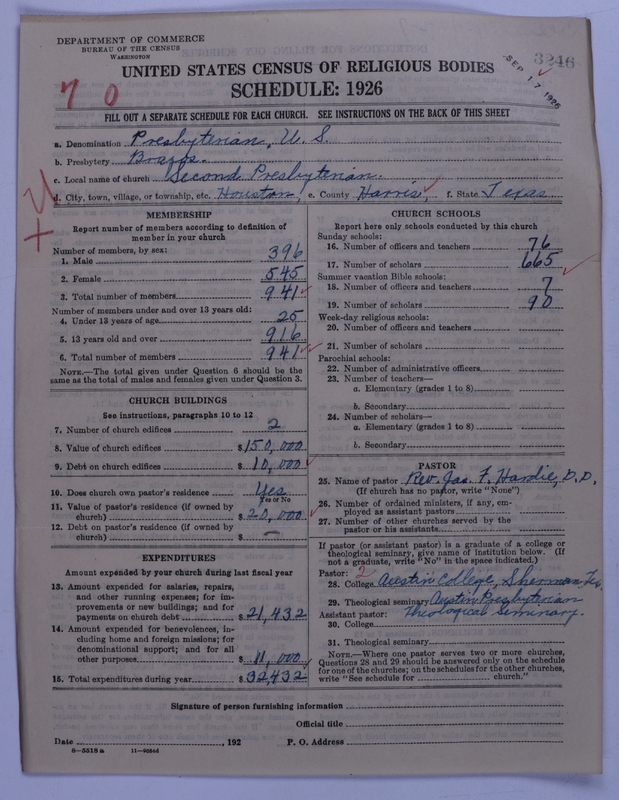 DEPARTMENT OF COMMERCE
BUREAU OF THE CENSUS
WASHINGTON
3246
SEP 17 1926
UNITED STATES CENSUS OF RELIGIOUS BODIES
SCHEDULE: 1926
7 0
FILL OUT A SEPARATE SCHEDULE FOR EACH CHURCH. SEE INSTRUCTIONS ON THE BACK OF THIS SHEET
a. Denomination Presbyterian, U. S.
b. Presbytery Brazos.
c. Local name of church Second Presbyterian.
d. City, town, village, or township, etc. Houston, e. County Harris, f. State Texas
MEMBERSHIP
Report number of members according to definition of
member in your church
Number of members, by sex:
1. Male 396
2. Female 545
3. Total number of members 941
Number of members under and over 13 years old:
4. Under 13 years of age 25
5. 13 years old and over 916
6. Total number of members 941
NOTE.—The total given under Question 6 should be
same as the total of males and females given under Question 3.
CHURCH BUILDINGS
See instructions, paragraphs 10 to 12
7. Number of church edifices 2
8. Value of church edifices $150,000
9. Debt on church edifices $10,000
10. Does church own pastor's residence Yes
Yes or No
11. Value of pastor's residence (if owned by
church) $20,000
12. Debt on pastor's residence (if owned by
church) $ —
EXPENDITURES
Amount expended by your church during last fiscal year
13. Amount expended for salaries, repairs,
and other running expenses; for im-
provements or new buildings; and for
payments on church debt $21,432
14. Amount expended for benevolences, in-
cluding home and foreign missions; for
denominational support; and for all
other purposes $11,000
15. Total expenditures during year $32,432
CHURCH SCHOOLS
Report here only schools conducted by this church
Sunday schools:
16. Number of officers and teachers 76
17. Number of scholars 665
Summer vacation Bible schools:
18. Number of officers and teachers 7
19. Number of scholars 90
Week-day religious schools:
20. Number of officers and teachers
21. Number of scholars
Parochial schools:
22. Number of administrative officers
23. Number of teachers—
a. Elementary (grades 1 to 8)
b. Secondary
24. Number of scholars—
a. Elementary (grades 1 to 8)
b. Secondary
PASTOR
25. Name of pastor Rev. Jas. F. Hardie, D. D.
(If church has no pastor, write "None")
26. Number of ordained ministers, if any, em-
ployed as assistant pastors
27. Number of other churches served by the
pastor or his assistants
If pastor (or assistant pastor) is a graduate of a college or
theological seminary, give name of institution below. (If
not a graduate, write "No" in the space indicated.)
Pastor: 2
28. College Austin College, Sherman Tex.
29. Theological seminary Austin Presbyterian
Assistant pastor: Theological Seminary.
30. College
31. Theological seminary
NOTE.—Where one pastor serves two or more churches,
Questions 28 and 29 should be answered only on the schedule
for one of the churches; on the schedules for the other churches,
write "See schedule for church."
Signature of person furnishing information
Official title
Date , 192 P. O. Address
8—5518 a